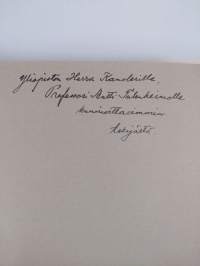 Yliopiston Herra Kanslerille,
Professori Antti Tulenheimolle
kunnioittavimmin
tekijältä